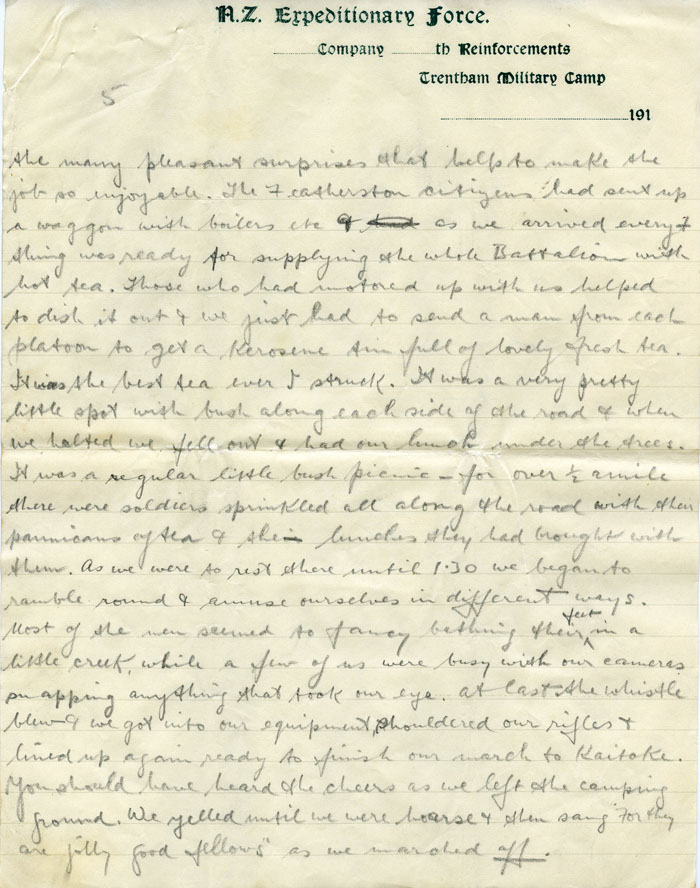 N.Z. Expeditionary Force.
Company th Reinforcements
Trentham Military Camp
191
5
the many pleasant surprises that help to make the
job so enjoyable. The Featherston citizens had sent up
a waggon with boilers etc & as we arrived every
thing was ready for supplying the whole Battalion with
hot tea. Those who had motored up with us helped
to dish it out & we just had to send a man from each
platoon to get a Kerosene tin full of lovely fresh tea.
It was the best tea ever I struck. It was a very pretty
little spot with bush along each side of the road & when
we halted we fell out & had our lunch under the trees.
It was a regular little bush picnic – for over ½ a mile
there were soldiers sprinkled all along the road with their
pannicans of tea & the lunches they had brought with
them. As we were to rest there until 1.30 we began to
ramble round & amuse ourselves in different ways.
Most of the men seemed to fancy bathing their feet in a
little creek, while a few of us were busy with our cameras
snapping anything that took our eye. At last the whistle
blew & we got into our equipment, shouldered our rifles &
lined up again ready to finish our march to Kaitoke.
You should have heard the cheers as we left the camping
ground. We yelled until we were hoarse & then sang "For they
are jolly good fellows" as we marched off.